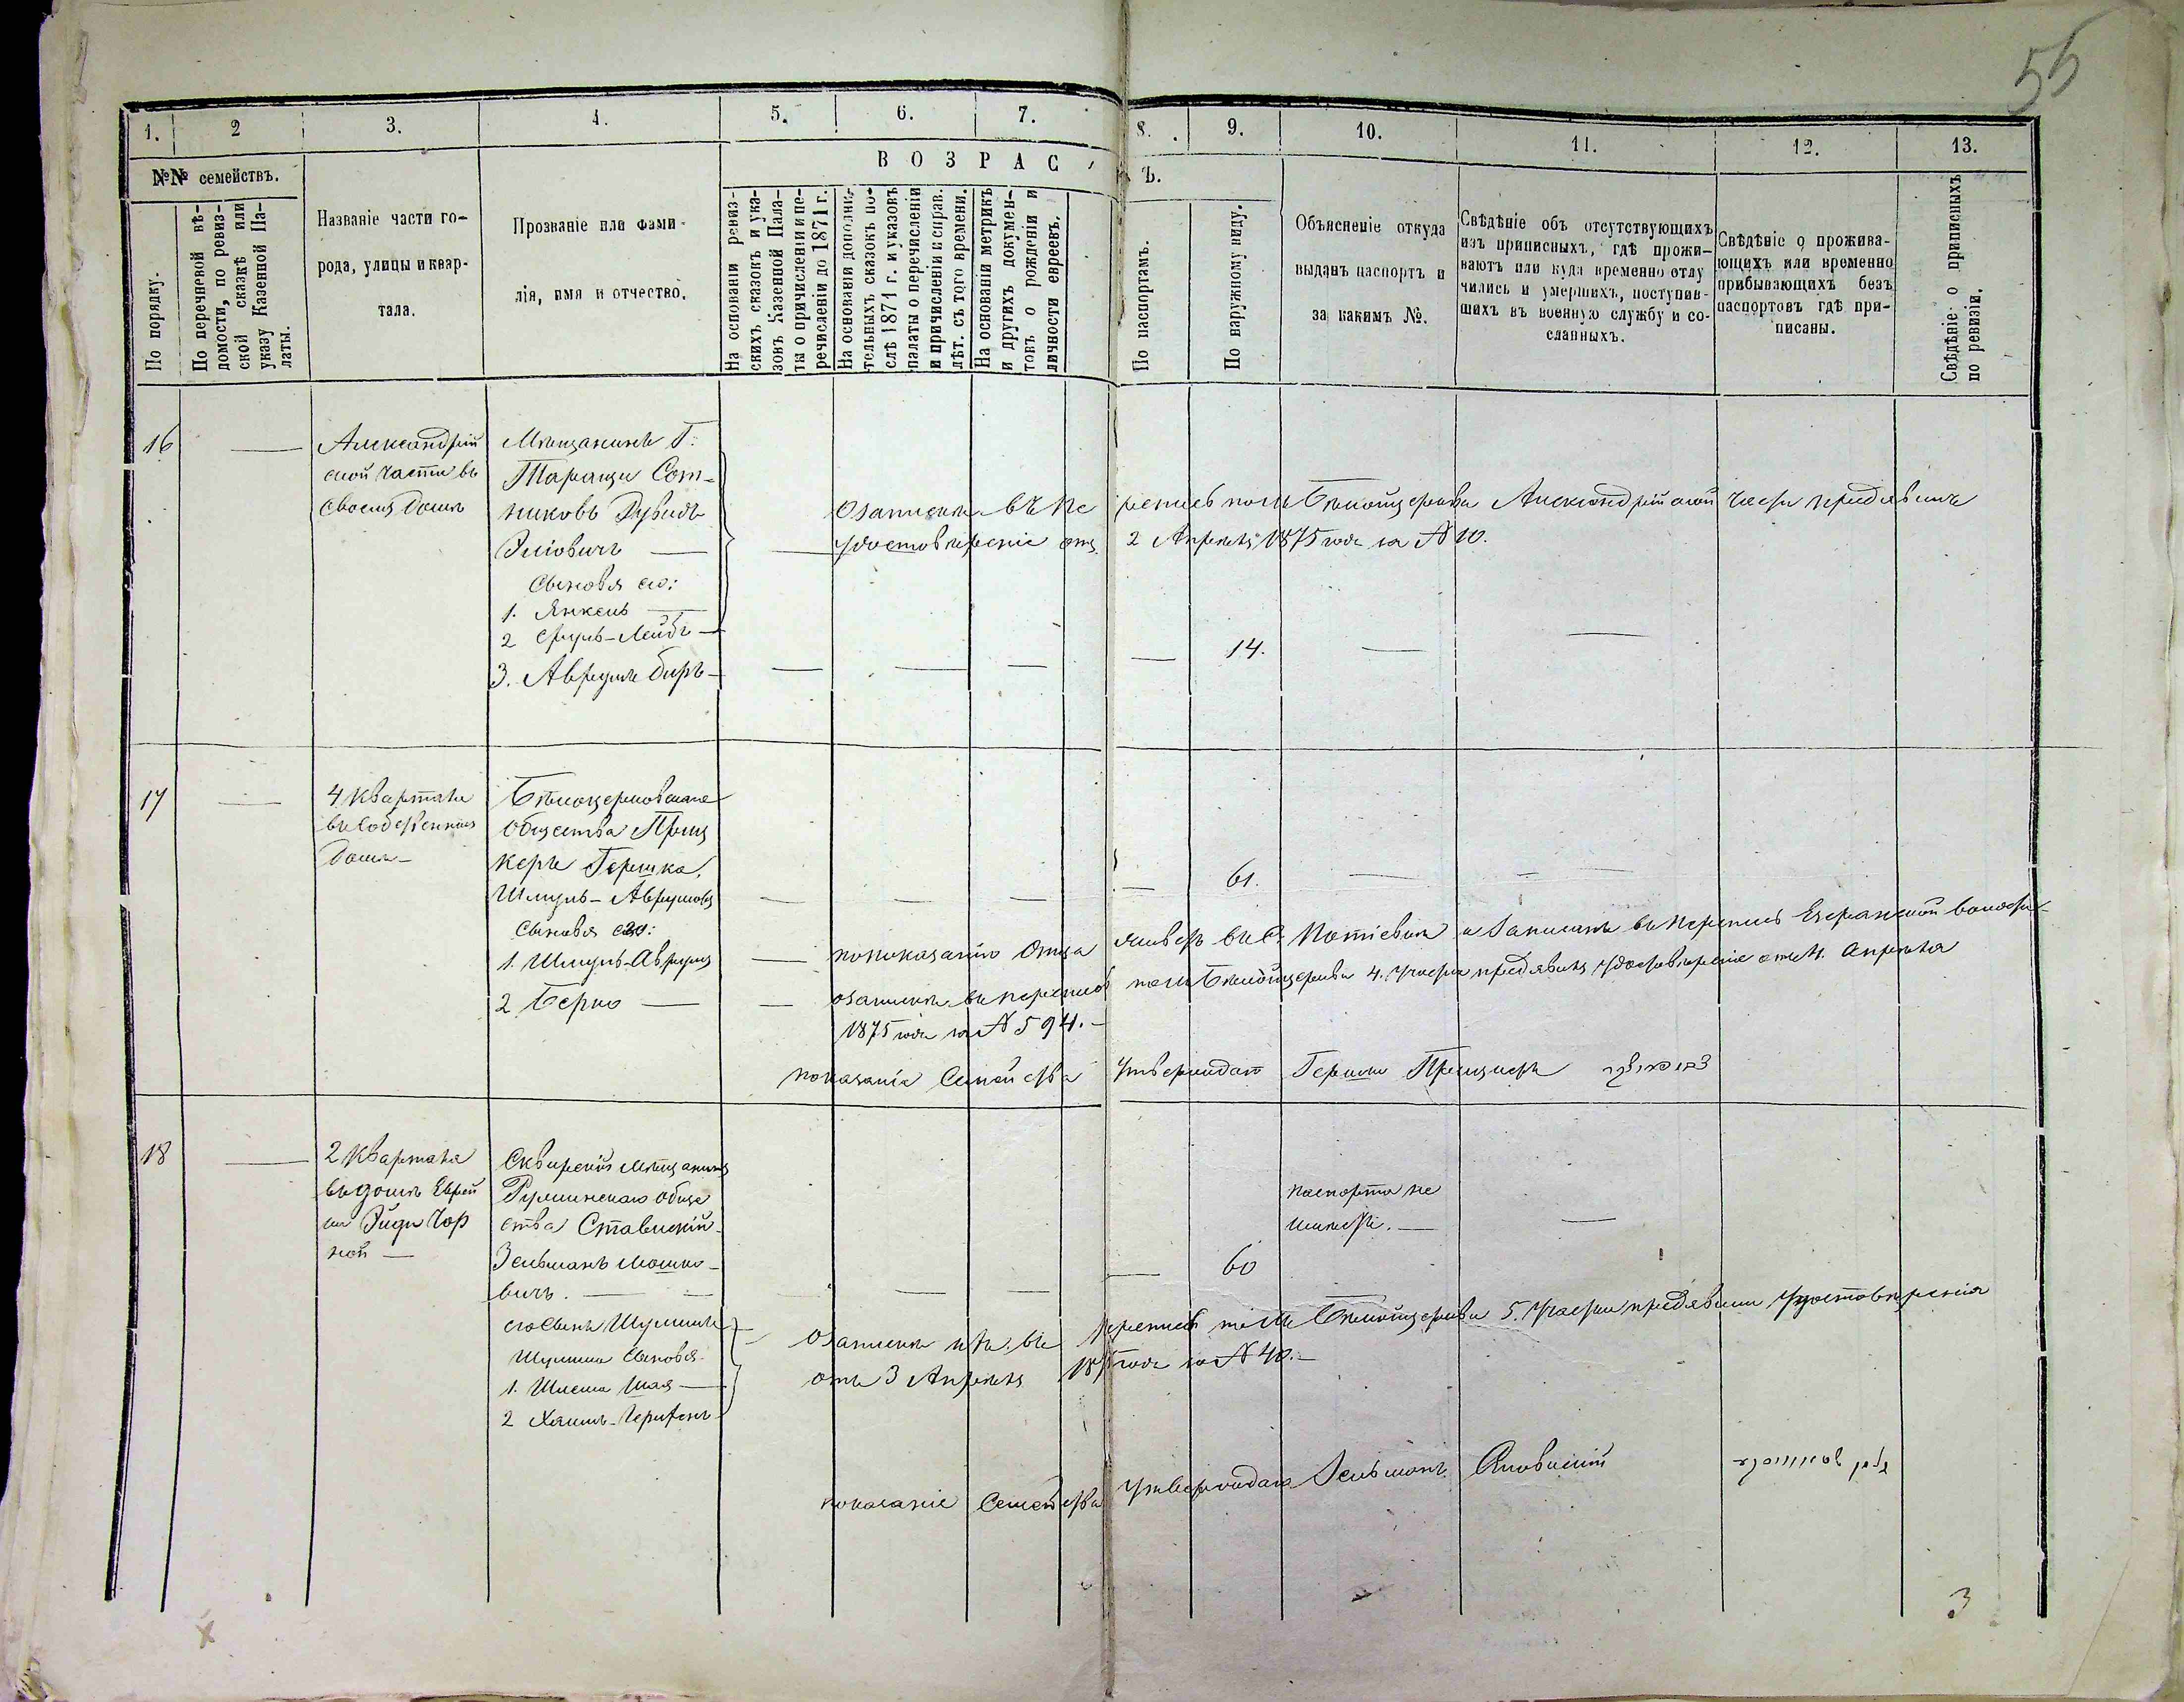 55
1. 2 3. 4. 5. 6. 7. 8. 9. 10. 11. 12. 13.
№№ семействъ.
ВОЗРАСТЪ.
По порядку.
По перечневой вѣ-
домости, по ревиз-
ской сказкѣ или
указу Казенной Па-
латы.
Названіе части го-
рода, улицы и квар-
тала.
Прозваніе или фами-
лія, имя и отчество.
На основаніи ревиз-
скихъ сказокъ и ука-
зокъ Казенной Пала-
ты о причисленіи и пе-
речисленіи до 1871 г.
На основаніи дополни-
тельныхъ сказокъ по-
слѣ 1871 г. и указовъ
палаты о перечисленіи
и причисленіи и справ.
лѣт. съ того времени.
На основаніи метрикъ
и другихъ докумен-
товъ о рожденіи и
личности евреевъ.
По паспортамъ.
По наружному виду.
Объясненіе откуда
выданъ паспортъ и
за какимъ №.
Свѣдѣніе объ отсутствующихъ
изъ приписныхъ, гдѣ прожи-
ваютъ или куда временно отлу
чились и умершихъ, поступив-
шихъ въ военную службу и со-
сланныхъ.
Свѣдѣніе о прожива-
ющихъ или временно
прибывающихъ безъ
паспортовъ гдѣ при-
писаны.
Свѣдѣніе о приписныхъ
по ревизіи.
16
Александрій
ской части въ
своемъ домѣ
Мѣщанинъ Г.
Таращи Сот-
никовъ Дувидъ
Эліовичъ
Сыновья его:
1. Янкель
2 Сруль-Лейбъ
3. Аврумъ Беръ
О записки въ пе реписъ Бѣлойцеркви Александрійской части предявилъ
удостовѣреніе отъ 2 Апрѣля 1875 года за № 10.
14.
17
4 Квартала
въ собственномъ
домѣ
Бѣлоцерковскаго
общества Прищ
керъ Гершка
Шмуль-Аврумовъ
Сыновья его:
1. Шмуль-Аврумъ
2 Берко
61.
попоказанію Отца живетъ въ С. и Записанъ въ перепись волости
О записки въ перепись Бѣлойцеркви 4. Участка предявилъ удостовѣреніе отъ 4. Апрѣля
1875 года за № 594.
показаніе Семейства Утверждаю Гершко Прищкеръ
18
2 Квартала
въ домѣ Еврей
ки Эйди Чор
ной
Сквирскій мѣщанинъ
общe
ства Ставискій
Зельманъ Мошко-
вичъ.
его Сынъ Шулимъ
Шулима Сыновья
1. Шлема Шая
2 Хаимъ-Гершонъ
паспорта не
имѣетъ.
60
О записки ихъ въ перепись Бѣлойцеркви 5. Участка предявили удостовѣренія
отъ 3 Апрѣля 1875 года за № 40.
показаніе Семейства Утверждаю Зельманъ
3